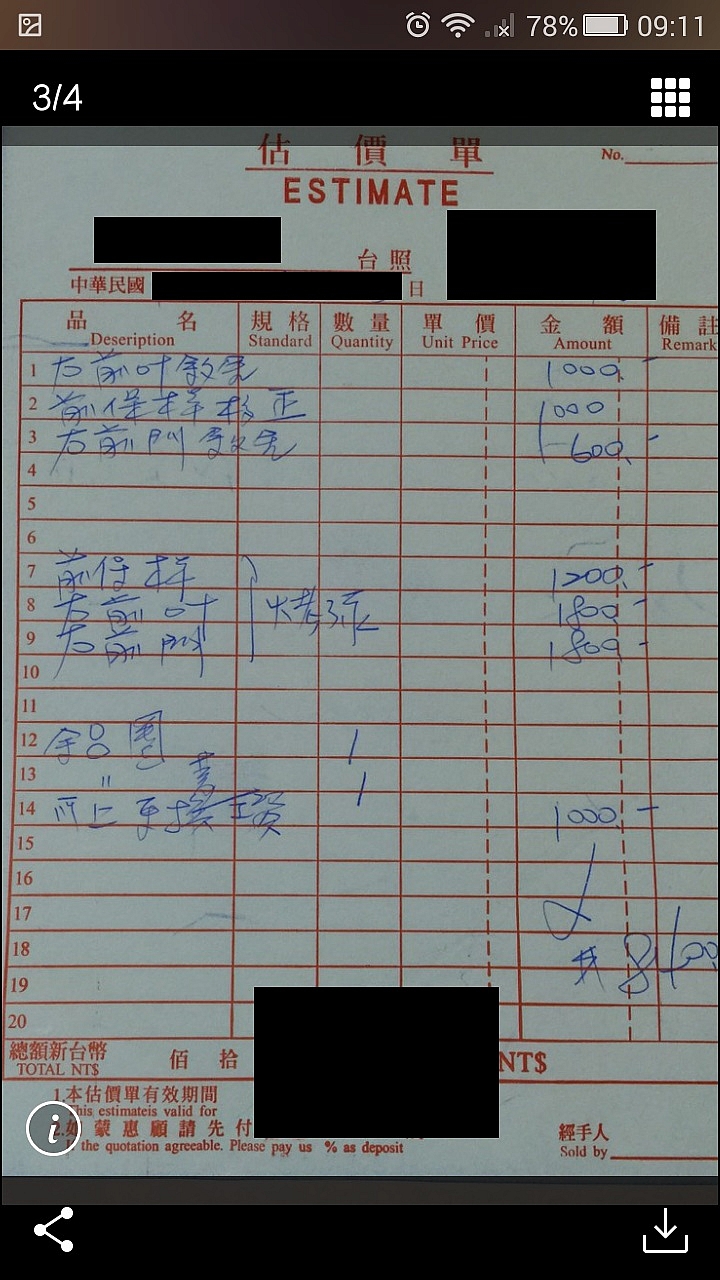 78% 09:11
3/4
估價單
No.
ESTIMATE
台照
中華民國 日
品名 規格 數量 單價 金額 備註
Deseription Standard Quantity Unit Price Amount Remark
1 左前叶鈑金 1000.-
2 前保桿校正 1000
3 左前門鈑金 600.-
4
5
6
7 前保桿 1200.-
8 左前叶 烤漆 1800.
9 左前門 1800.-
10
11
12 鋁圈 1
13 〃 1
14 1000.-
15
16
17
18 # 8400
19
20
總額新台幣 佰拾
TOTAL NT$ NT$
1.本估價單有效期間
his estimateis valid for
蒙惠顧請先付
the quotation agreeable. Please pay us % as deposit
經手人
Sold by